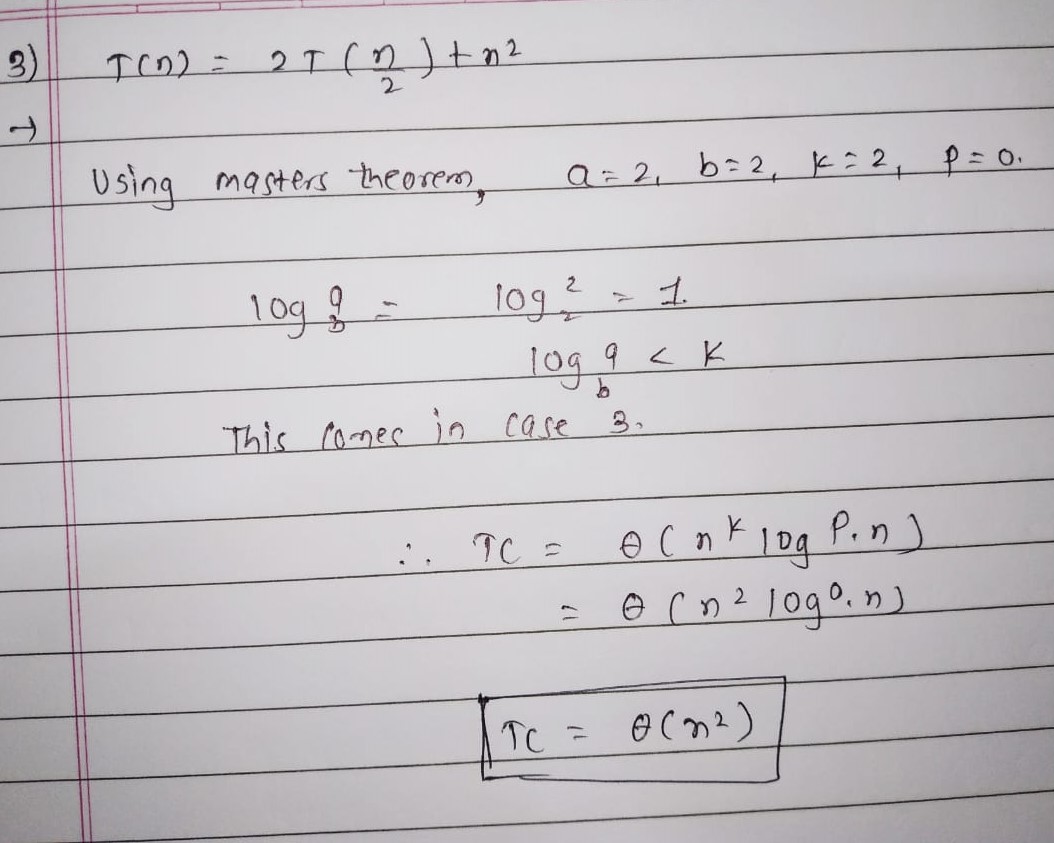 3) T(n) = 2T(n/2) + n²
→
Using masters theorem, a = 2, b = 2, k = 2, p = 0.
log a b = log 2 2 = 1.
log a b < k
This comes in case 3.
∴ TC = θ(n^k log^p. n)
= θ(n² log⁰. n)
TC = θ(n²)